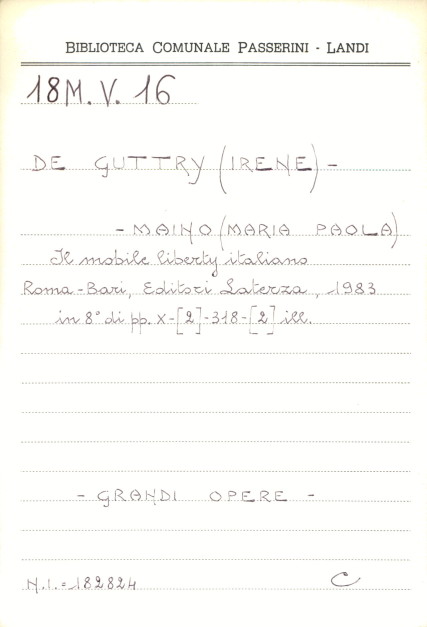 BIBLIOTECA COMUNALE PASSERINI - LANDI
18M. V. 16
DE GUTTRY (IRENE) -
- MAINO (MARIA PAOLA)
Il mobile liberty italiano
Roma-Bari, Editori Laterza, 1983
in 8° di pp. X-[2]-318-[2] ill.
- GRANDI OPERE -
N.I. = 182824 C